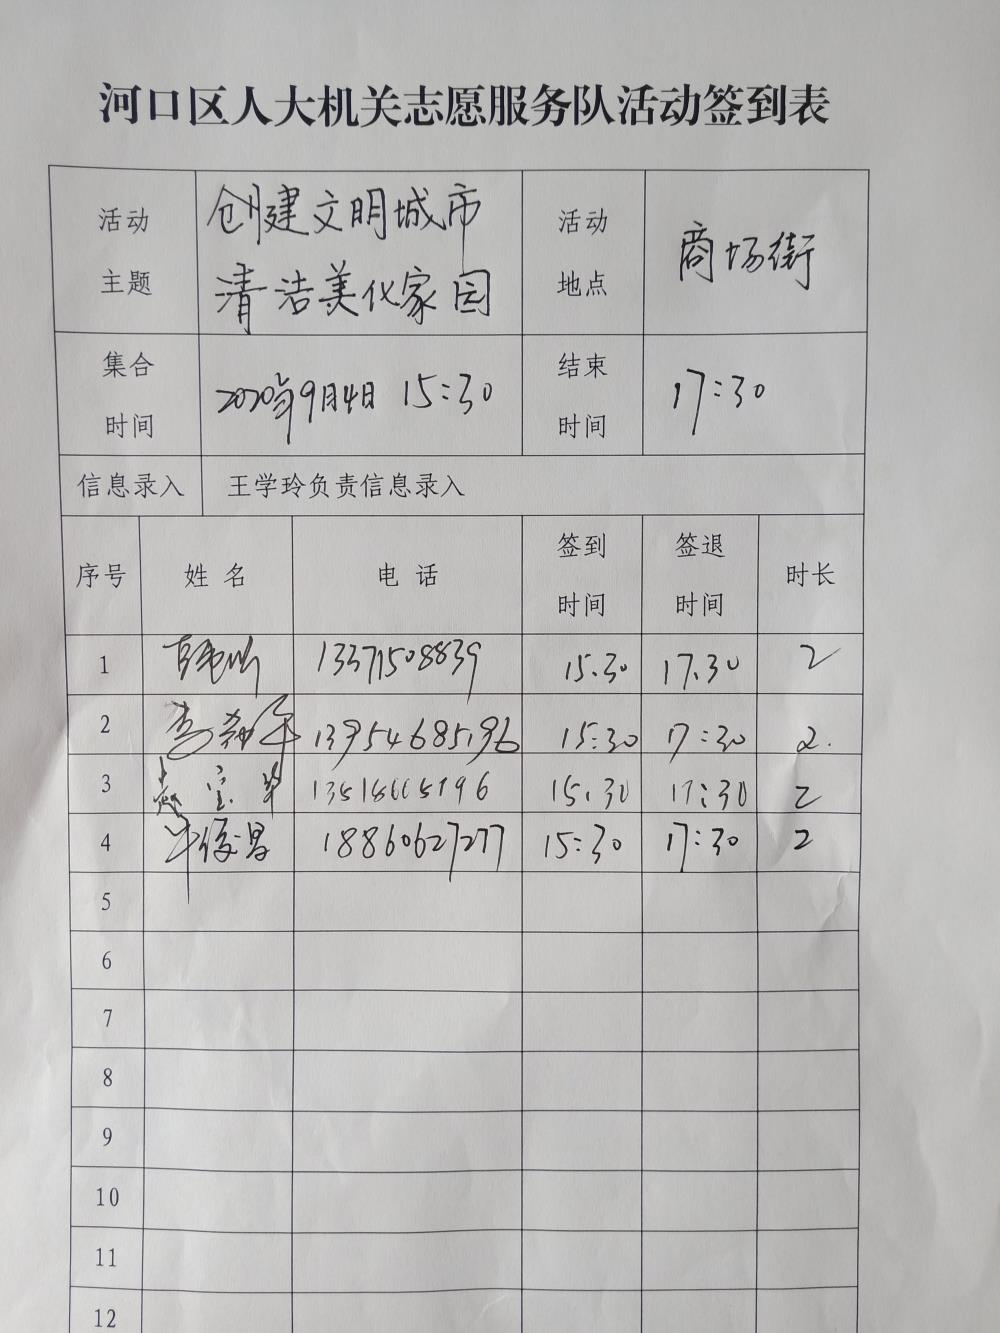 河口区人大机关志愿服务队活动签到表
活动主题 创建文明城市清洁美化家园 活动地点 商场街
集合时间 2020年9月4日 15:30 结束时间 17:30
信息录入 王学玲负责信息录入
序号 姓名 电话 签到时间 签退时间 时长
1 13371508839 15.30 17.30 2
2 13954685196 15:30 17:30 2.
3 宝华 15:30 17:30 2
4 牛俊昌 18860627277 15:30 17:30 2
5
6
7
8
9
10
11
12